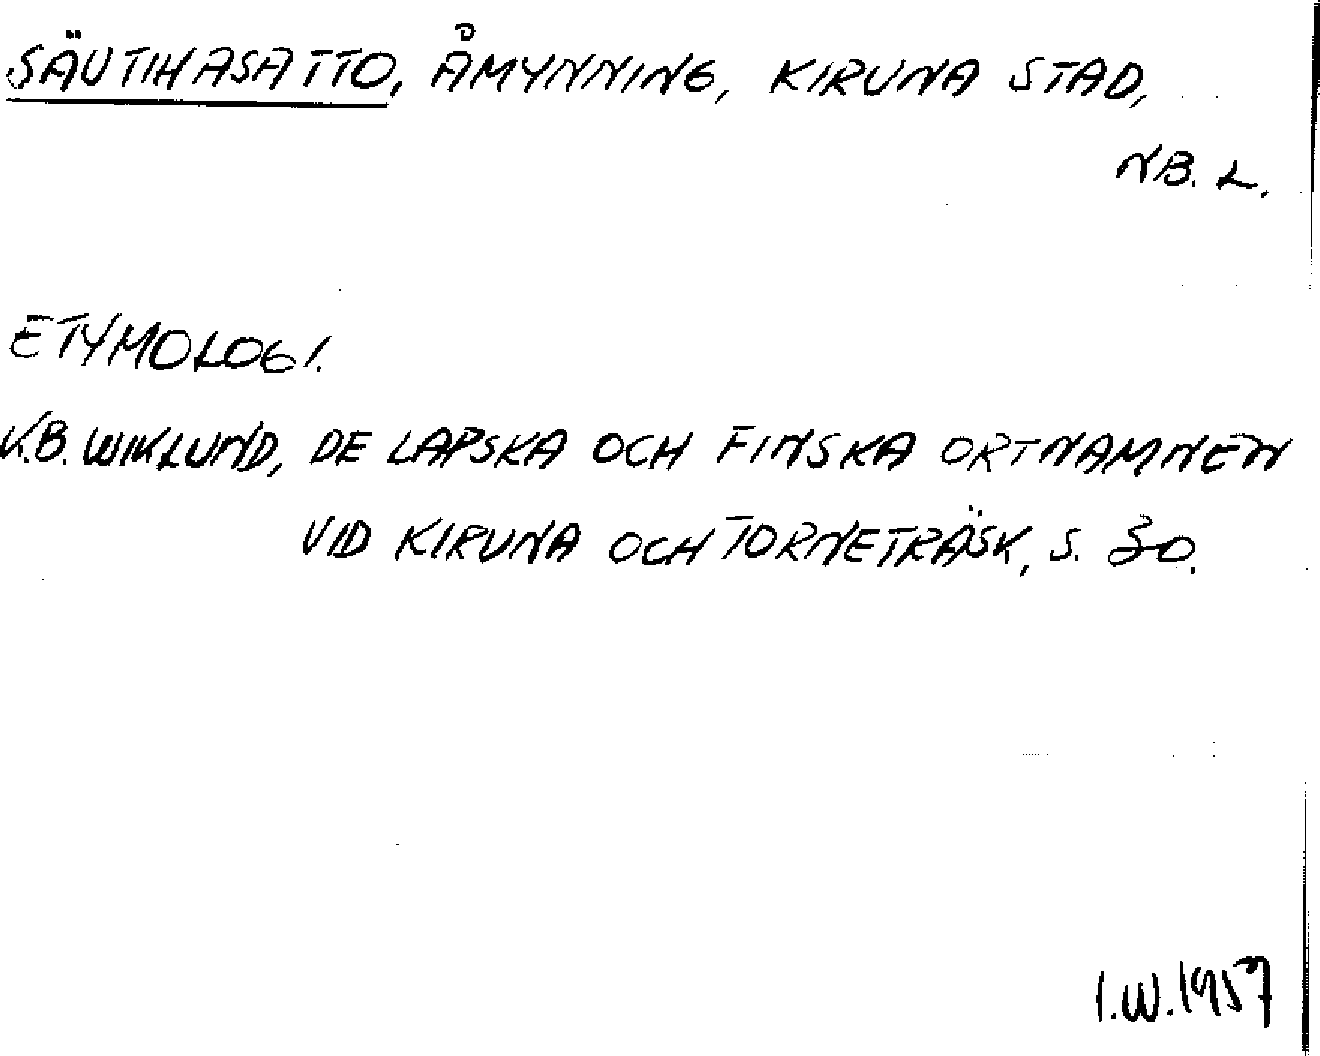 SÄUTIHASATTO, ÅMYNNING, KIRUNA STAD,
NB. L.
ETYMOLOGI.
K.B. WIKLUND, DE LAPSKA OCH FINSKA ORTNAMNEN
VID KIRUNA OCH TORNETRÄSK, S. 30.
I.W. 1957